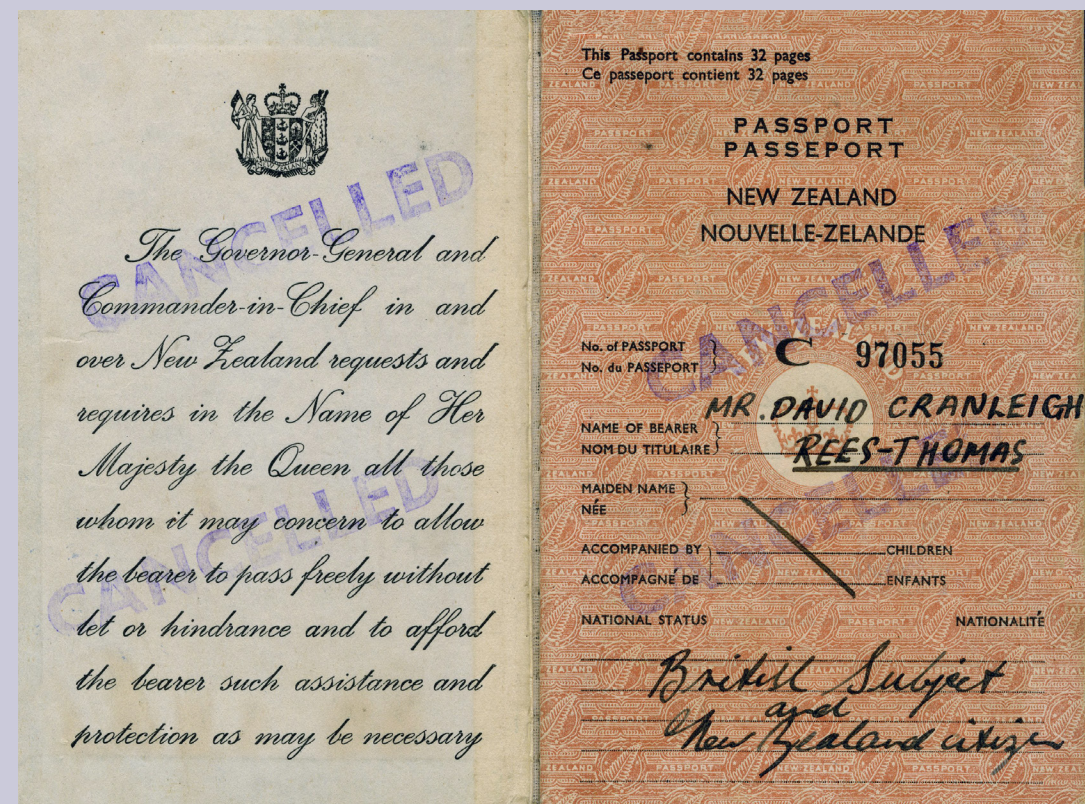 NEW ZEALAND
The Governor-General and
Commander-in-Chief in and
over New Zealand requests and
requires in the Name of Her
Majesty the Queen all those
whom it may concern to allow
the bearer to pass freely without
let or hindrance and to afford
the bearer such assistance and
protection as may be necessary
CANCELLED
CANCELLED
This Passport contains 32 pages
Ce passeport contient 32 pages
PASSPORT
PASSEPORT
NEW ZEALAND
NOUVELLE-ZELANDE
NEW ZEALAND
No. of PASSPORT
No. du PASSEPORT
C 97055
NAME OF BEARER
NOM DU TITULAIRE
MR. DAVID CRANLEIGH
REES-THOMAS
MAIDEN NAME
NÉE
ACCOMPANIED BY CHILDREN
ACCOMPAGNÉ DE ENFANTS
NATIONAL STATUS NATIONALITÉ
British Subject
and
New Zealand citizen
CANCELLED
CANCELLED